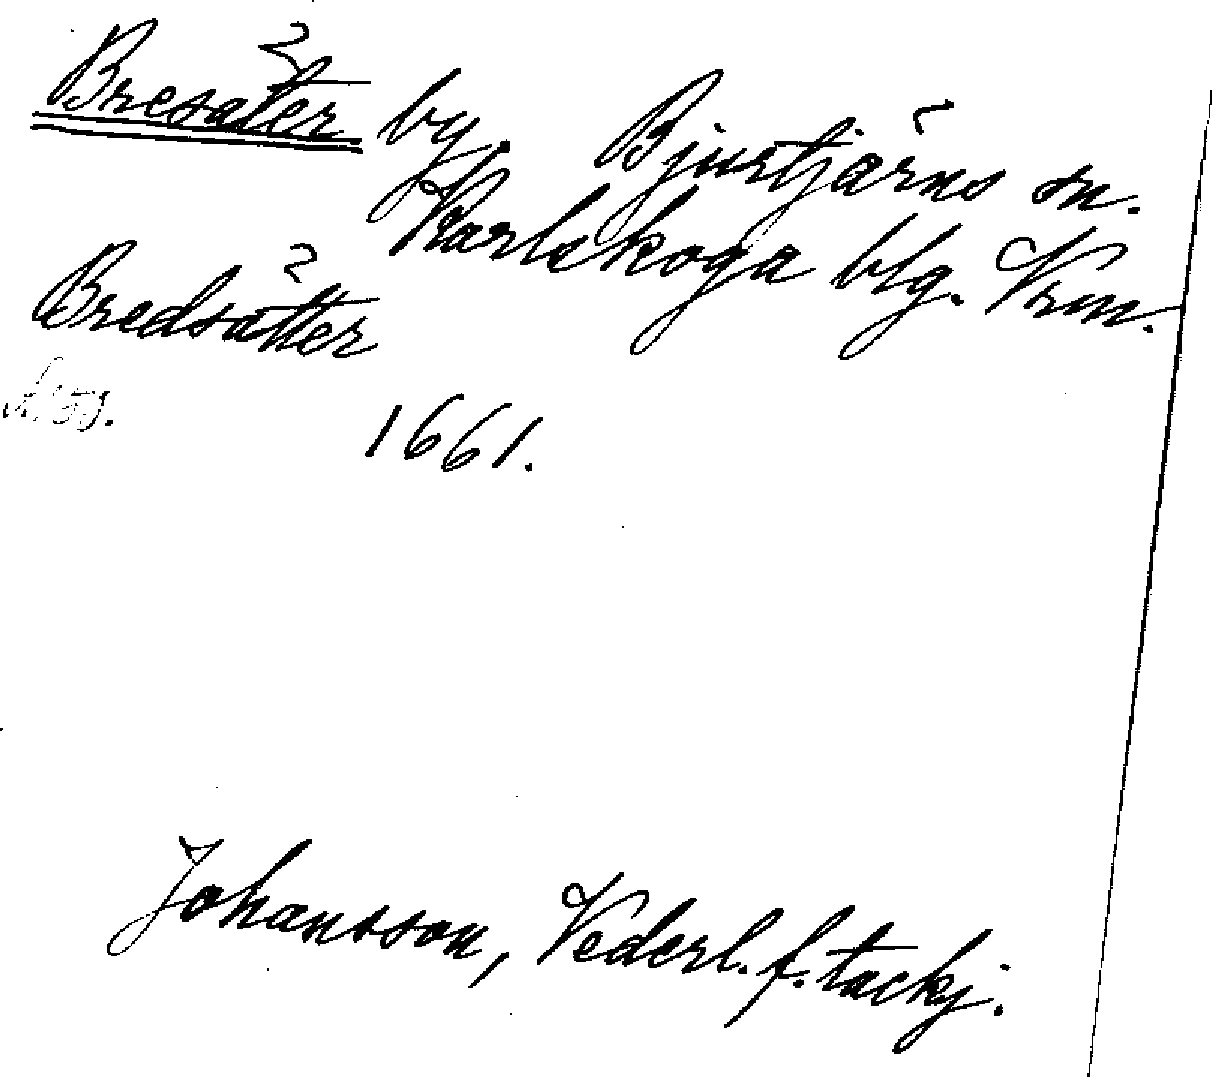 Bresäter by, Bjurtjärns sn.
Karlskoga blg. Vrm.
Bredsätter
1661.
Johansson, Vederl. f. tackj.